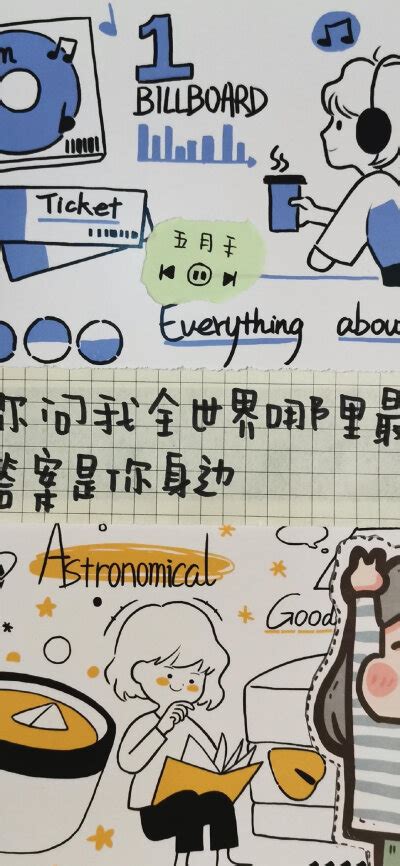 1
BILLBOARD
Ticket
五月天
Everything abou
你问我全世界哪里最
答案是你身边
Astronomical
Good